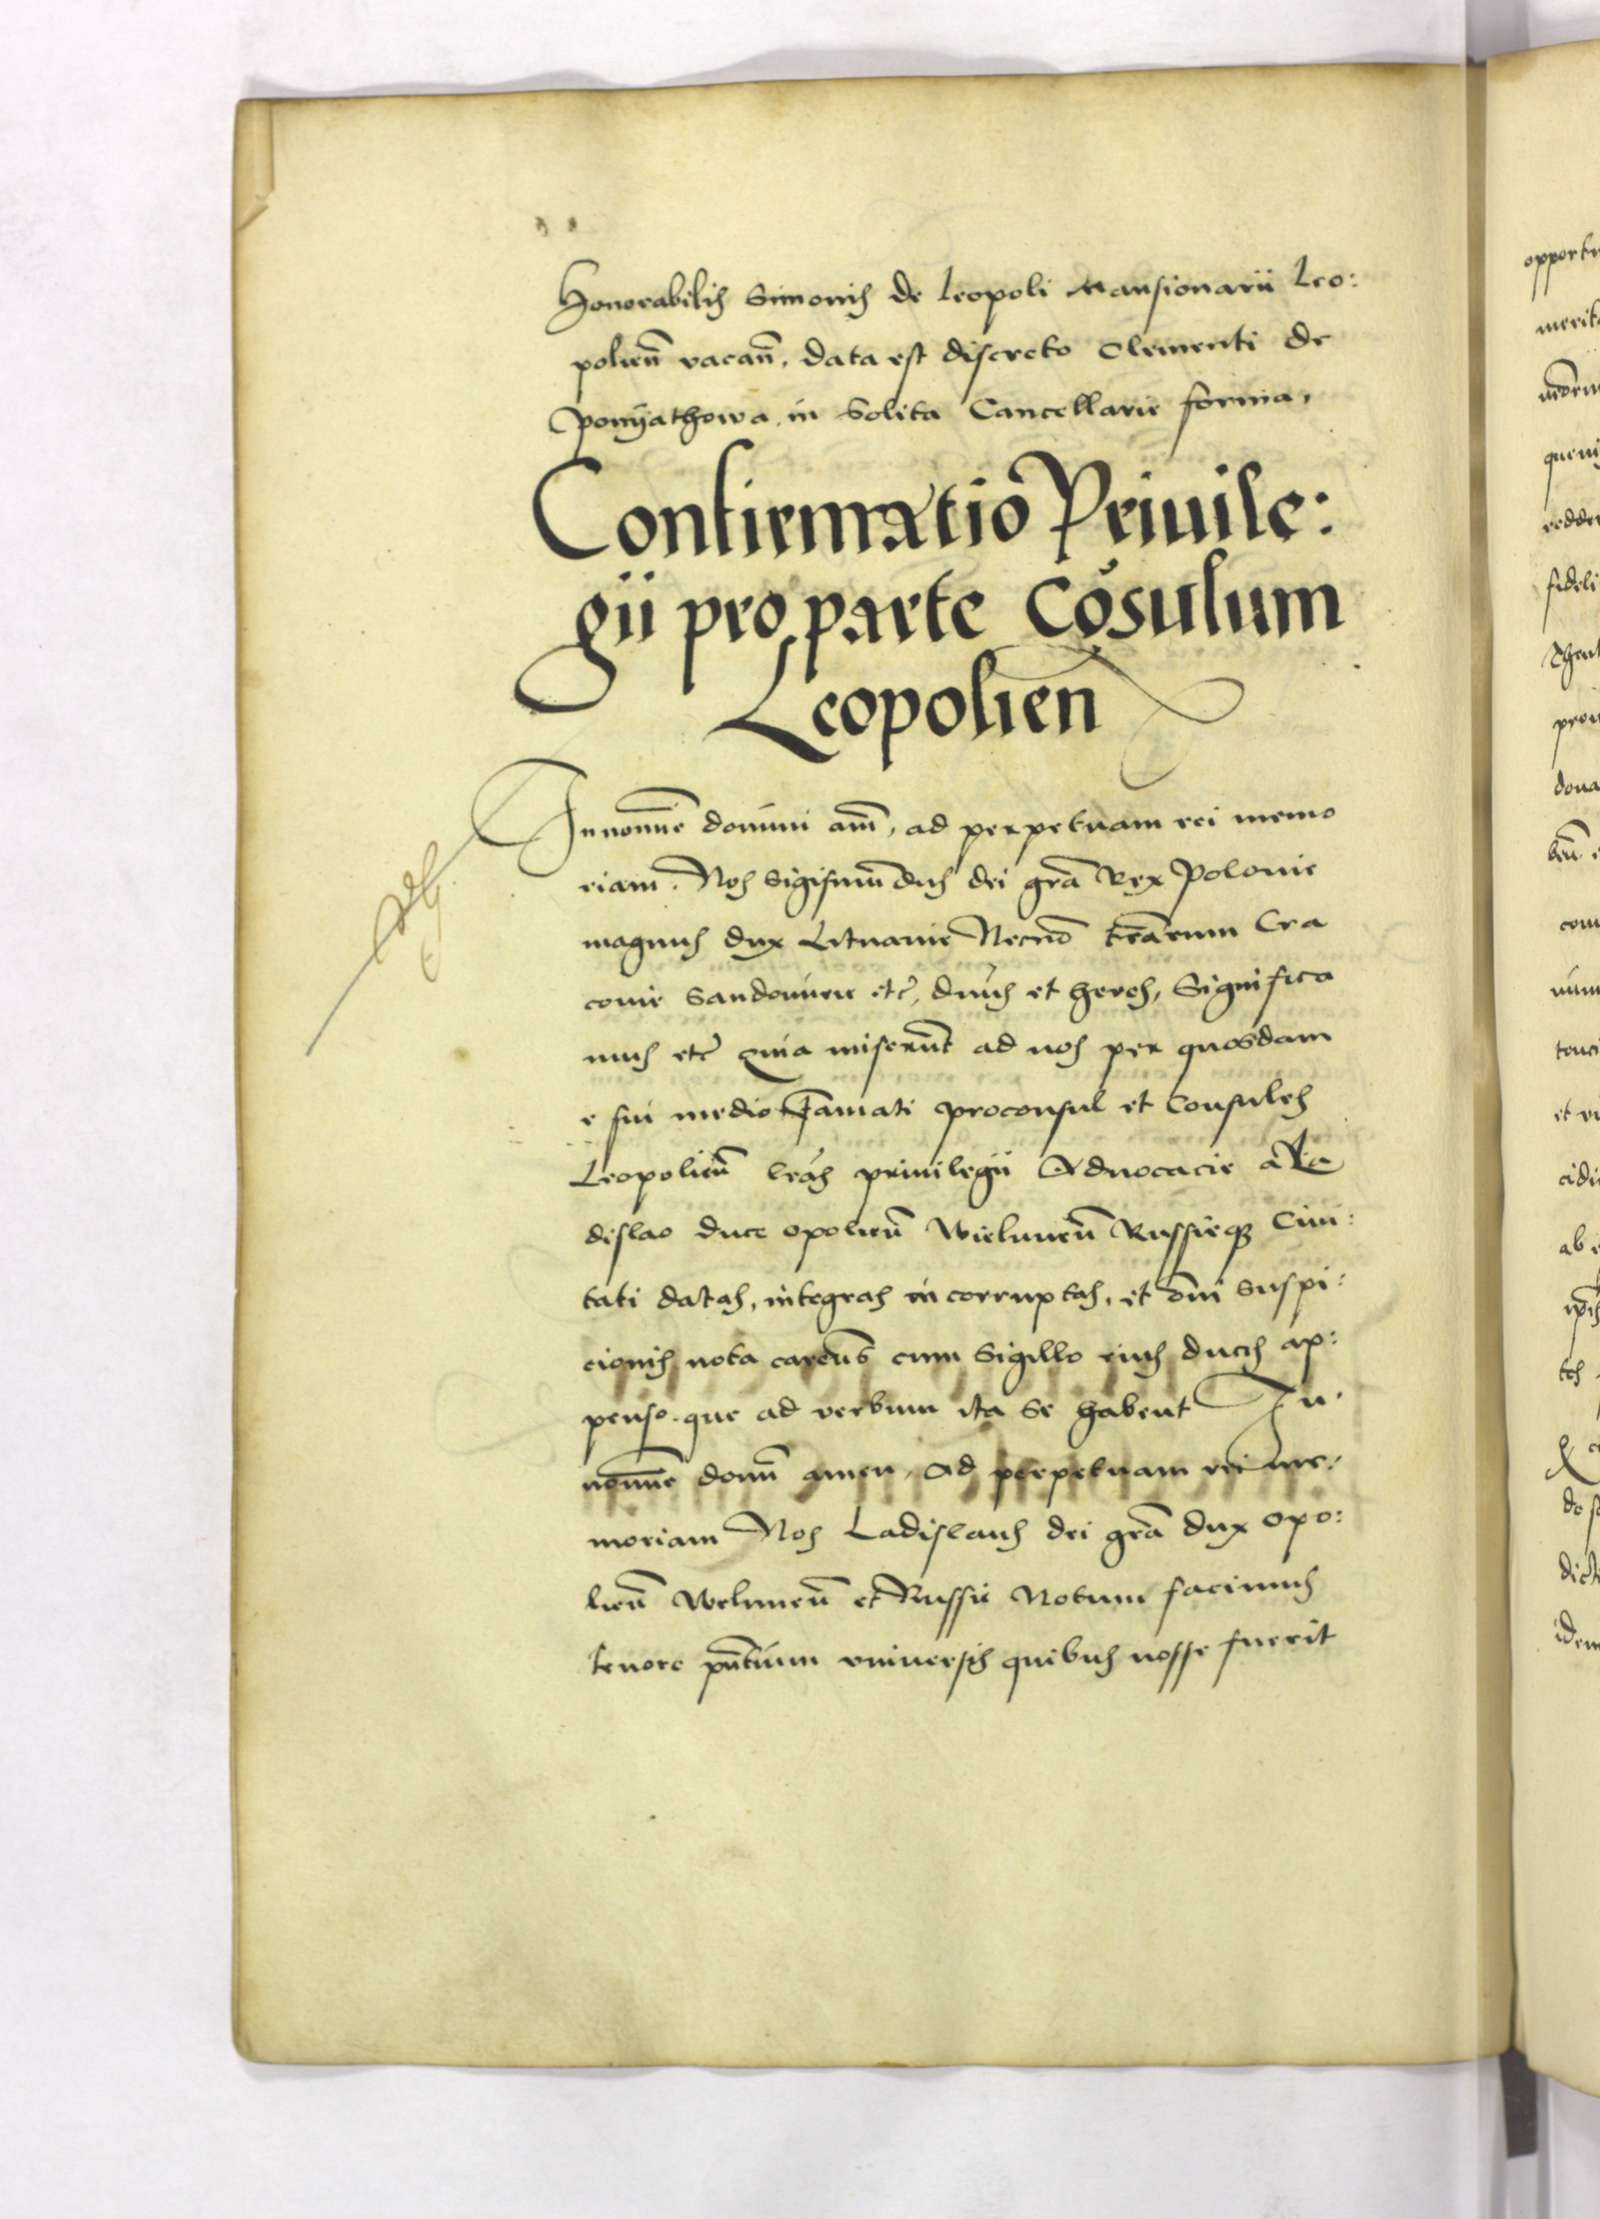 Honorabilis Simonis de Leopoli Mansionarii Leo:
polien̄ vacan̄. data est discreto Clementi de
Ponyathowa. in Solita Cancellarie forma.
Confirmatiō Priuile:
gii pro parte Cōsulum
Leopolien
In nomīe domini am̄, ad perpetuam rei memo
riam. Nos Sigismūdus dei grā Rex Polonie
magnus dux Lituanie Necnō terrarum Cra
couie Sandomirie etc̄, dn̄us et heres, Significa
mus etc̄ Quia miserūt ad nos per quosdam
e sui medio famati proconsul et Consules
Leopolien̄ lr̄as priuilegii Aduocacie a La
dislao duce opolien̄ Wielunen̄ Russieq Ciui:
tati datas, integras in corruptas, et om̄i Suspi:
cionis nota carēns cum Sigillo eius ducis ap:
penso. que ad verbum ita se habent In
nomīe domī amen, Ad perpetuam rei me:
moriam Nos Ladislaus dei grā dux Opo:
lien̄ Welunen̄ et Russie Notum facimus
tenore pn̄tium vniuersis quibus nosse fuerit